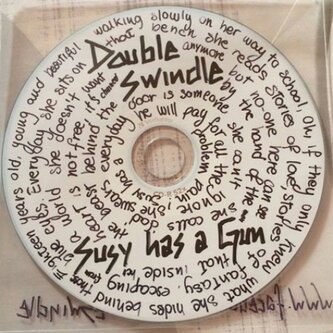 Double
Swindle
Susy has a Gun
Eighteen years old, young and beautiful walking slowly on her way to school. Oh, if they only knew what she hides behind those
blue eyes. Everyday she sits on that bench she reads stories of love stories of fantasy. escaping from
a world she doesn't want anymore but no-one here can see that inside her
heart is not free it's chained by the hand of the
beast behind the door is someone she calls
god she swears everyday he will pay for all the pain
www.facebo
swindle